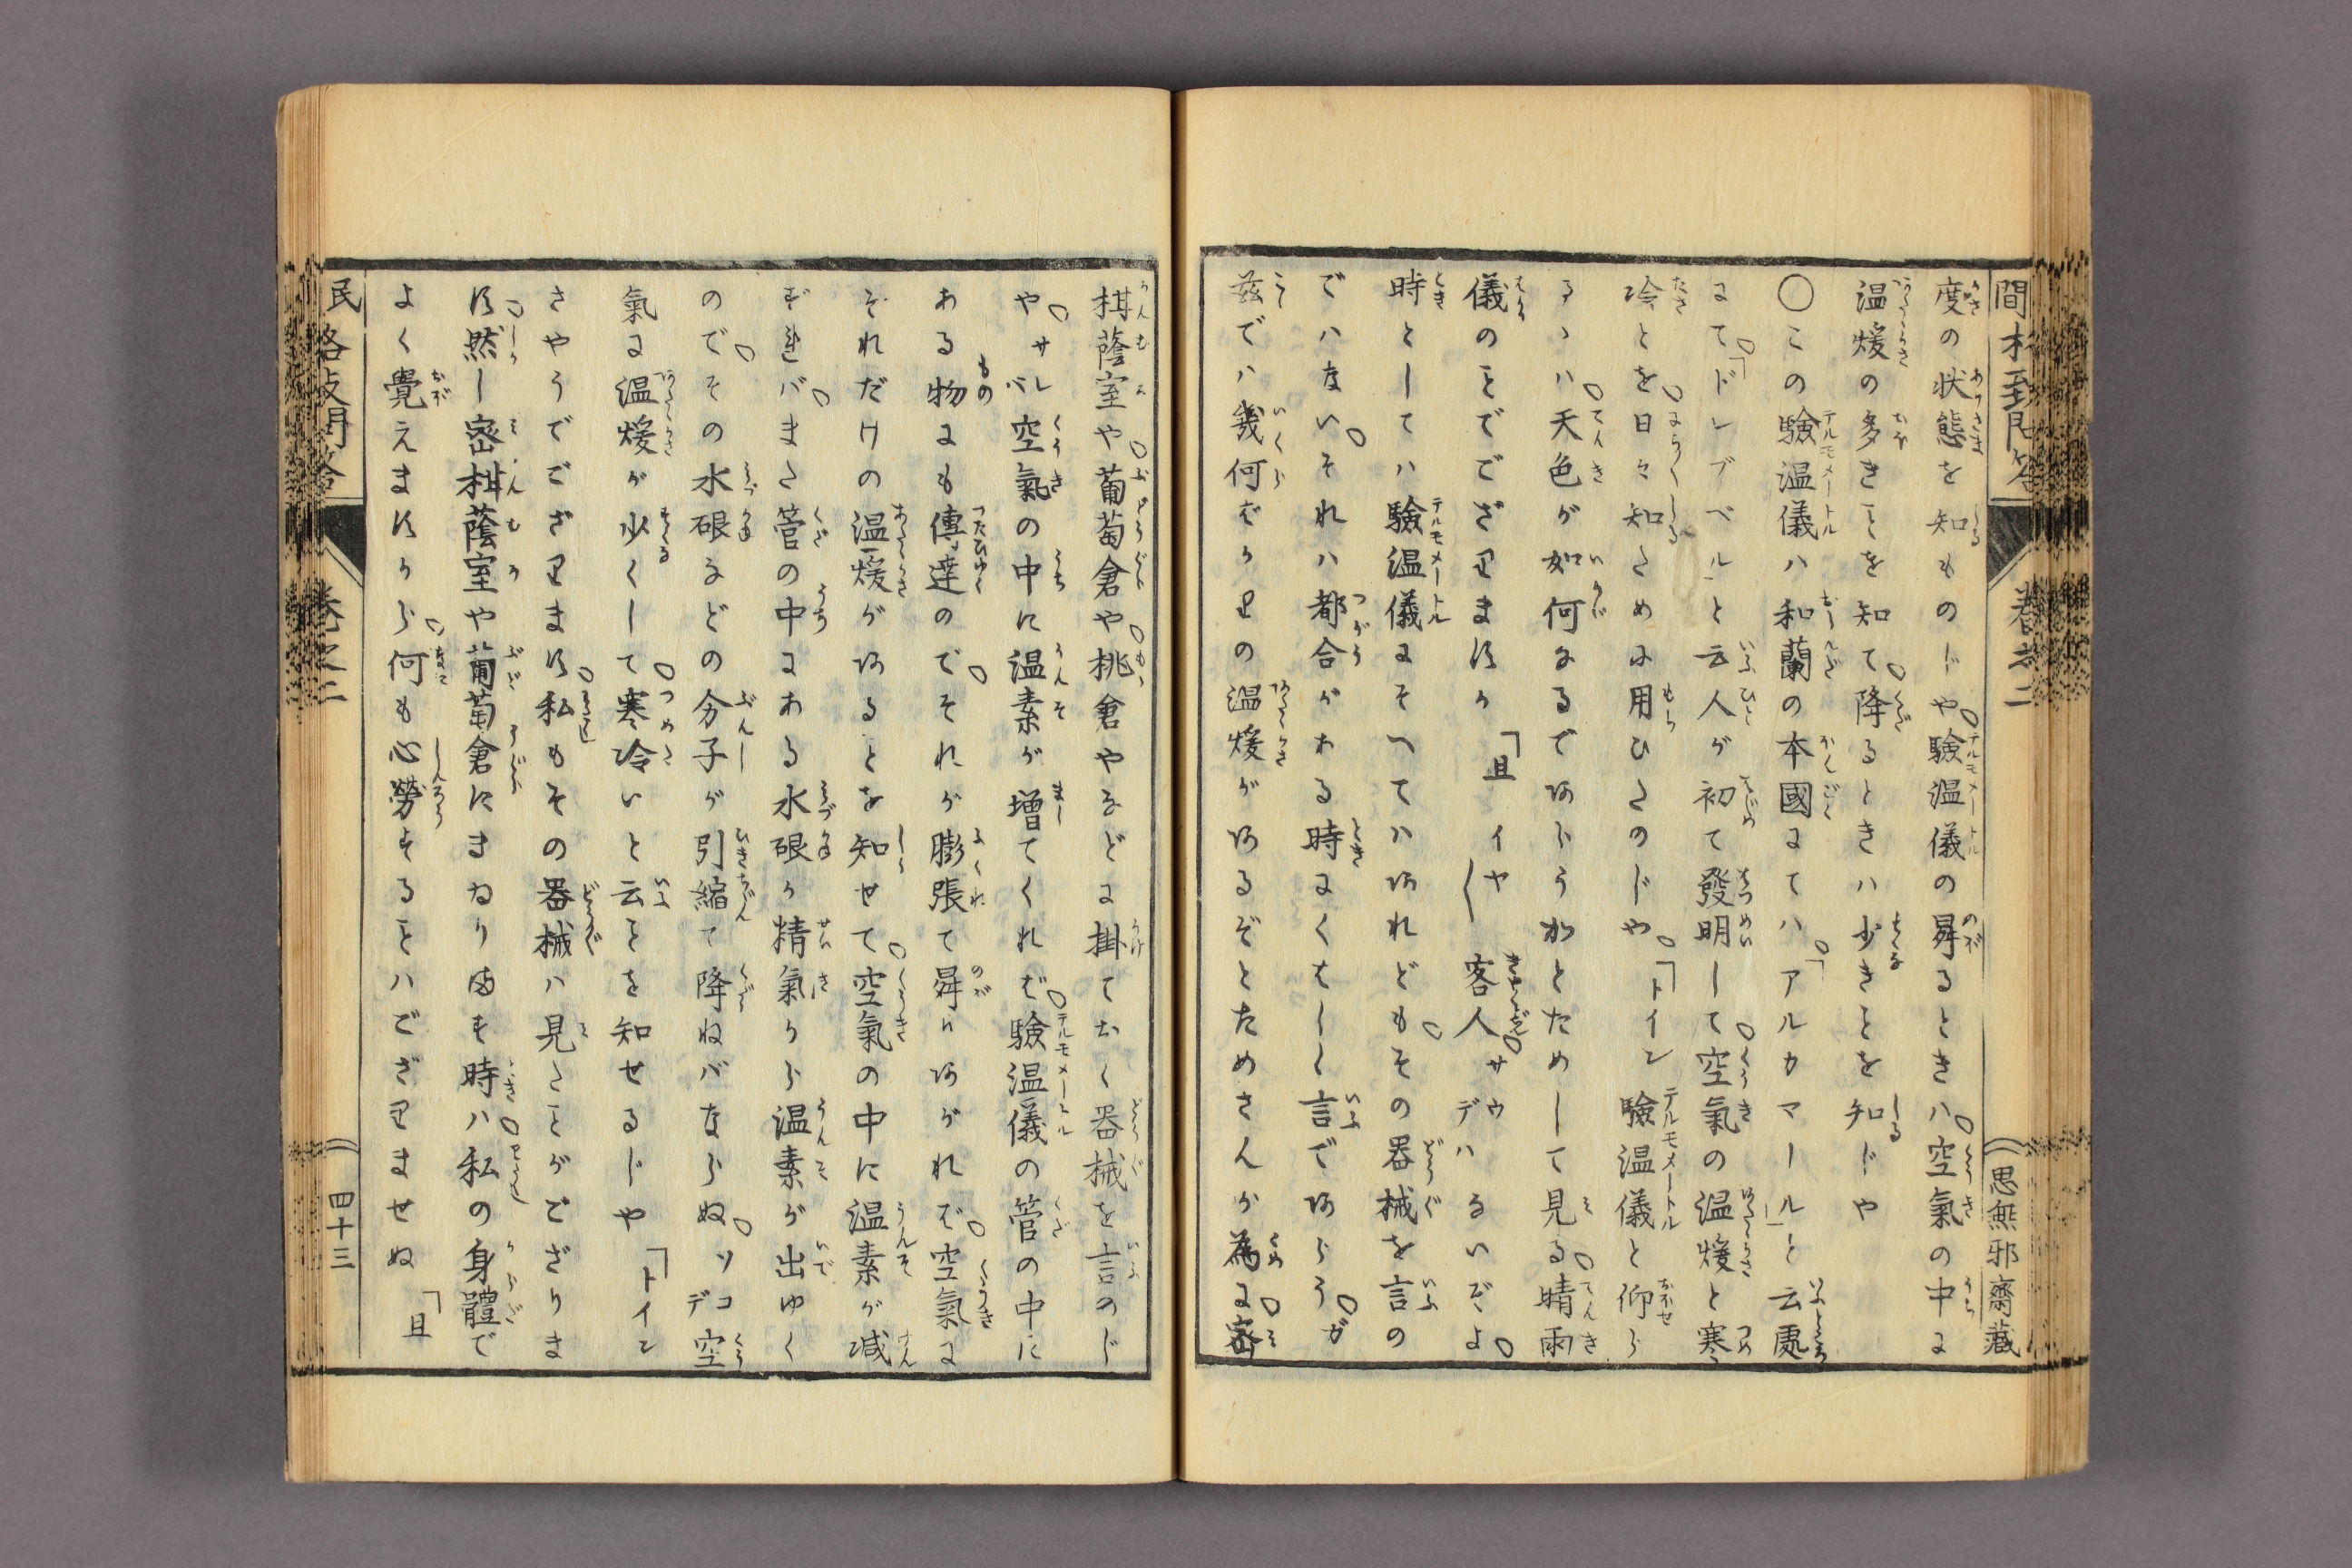 度の状態を知ものじや験温儀の昇るときハ空氣の中に
温煖の多きことを知て降るときハ少きことを知じや
○この験温儀ハ和蘭の本國にてハ「アルカマール」と云處
にて「ドレブベル」と云人が初て發明して空氣の温煖と寒
冷とを日々知ために用ひたのじや「トイン験温儀と仰ら
るゝハ天色が如何なるであらうかとためして見る晴雨
儀のことでござりますか「且イヤ〱客人サウデハないぞよ
時としてハ験温儀にそへてハあれどもその器械を言の
でハないそれハ都合がある時にくはしく言であらうガ
茲でハ幾何ばかりの温煖があるぞとためさんが為に密
柑蔭室や葡萄倉や桃倉やなどに掛ておく器械を言のじ
やサレバ空氣の中に温素が増てくれば験温儀の管の中に
ある物にも傳達のでそれが膨張て昇りあがれば空氣に
それだけの温煖があるとを知せて空氣の中に温素が減
ずればまた管の中にある水硍か精氣から温素が出ゆく
のでその水硍などの分子が引縮て降ねバならぬソコデ空
氣に温煖が少くして寒冷いと云ことを知せるじや「トイン
さやうでござります私もその器械ハ見たことがござりま
す然し密柑蔭室や葡萄倉にまゐります時ハ私の身體で
よく覺えますから何も心勞することハござりませぬ「且
民間格致問答
卷之二
思無邪齋藏
民間格致問答
卷之二
四十三